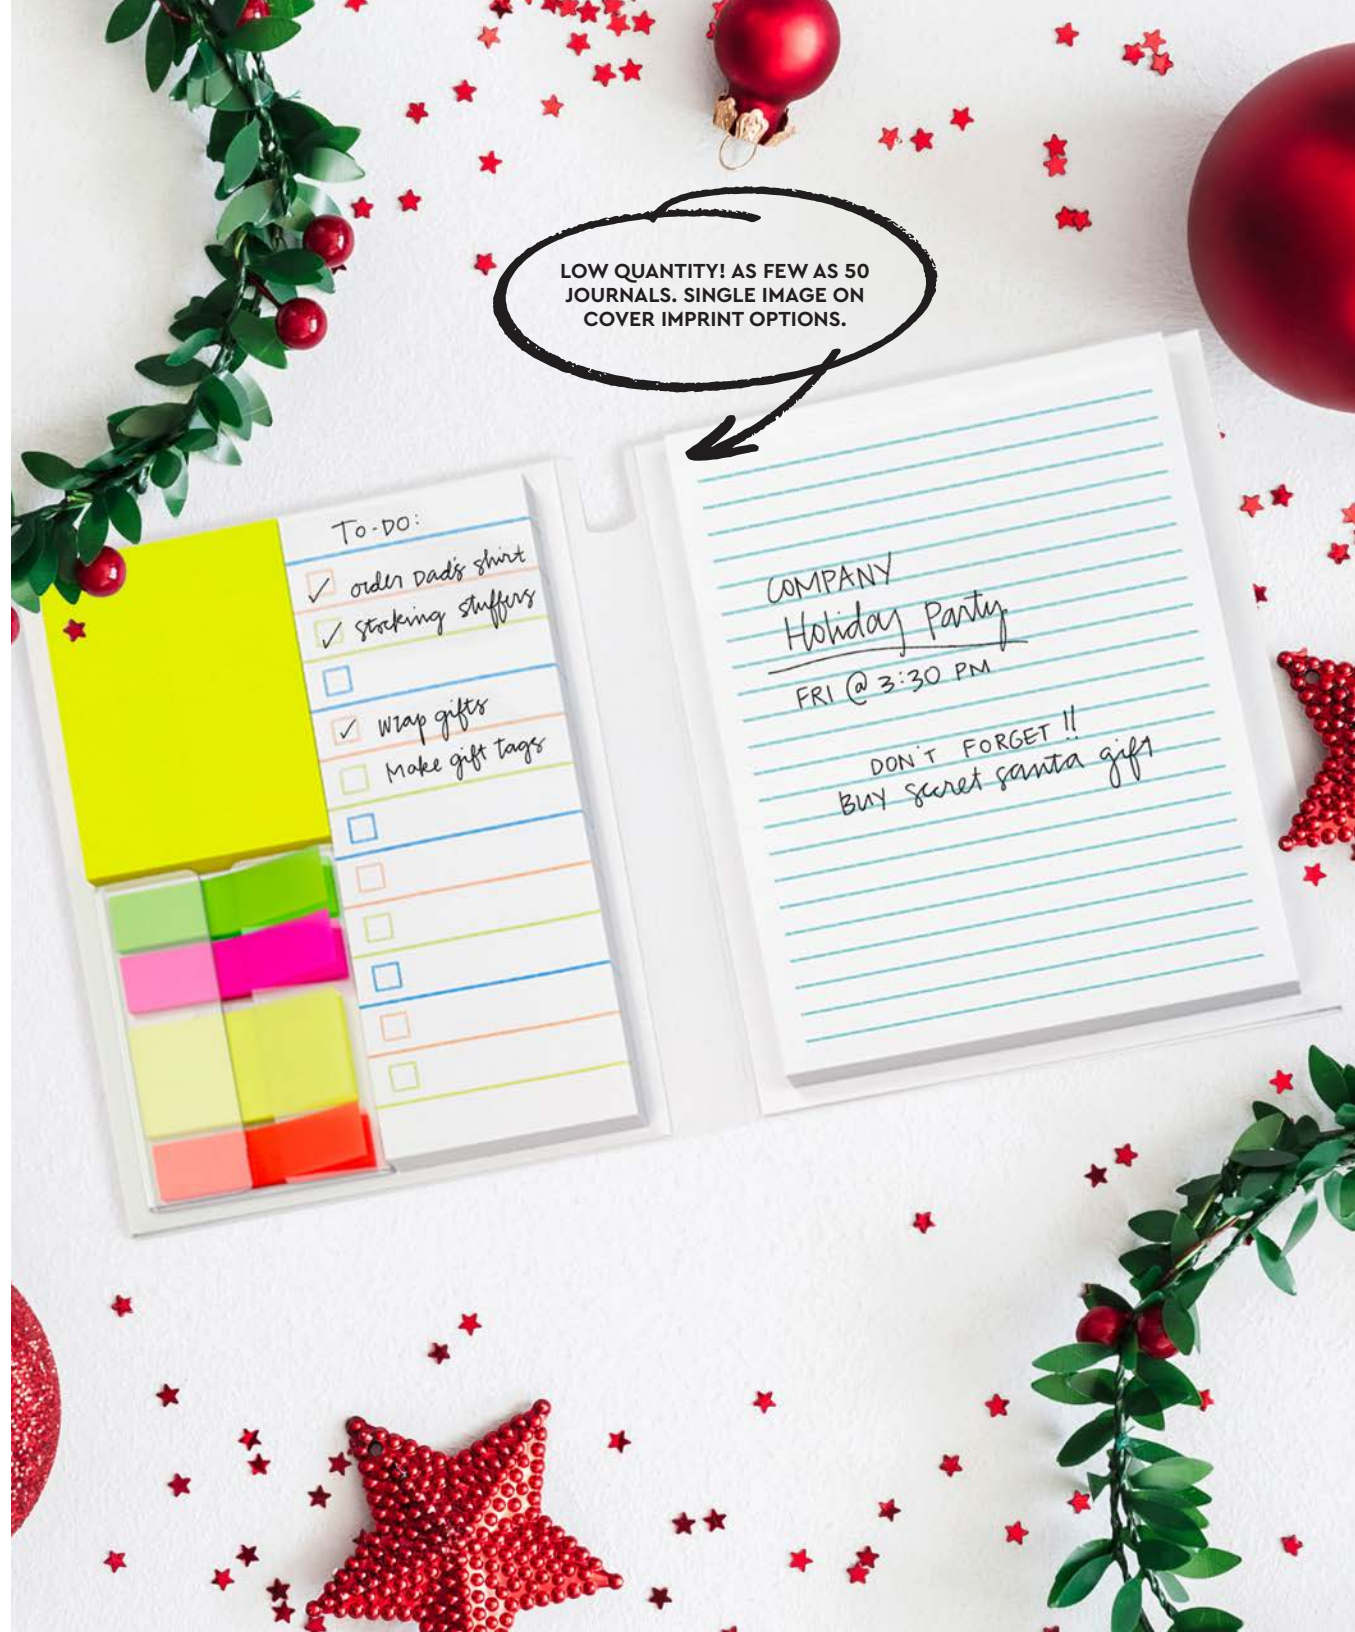 LOW QUANTITY! AS FEW AS 50
JOURNALS. SINGLE IMAGE ON
COVER IMPRINT OPTIONS.
TO-DO:
order Dad's shirt
stocking stuffers
wrap gifts
Make gift tags
COMPANY
Holiday Party
FRI @ 3:30 PM
DON'T FORGET !!
BUY secret santa gift